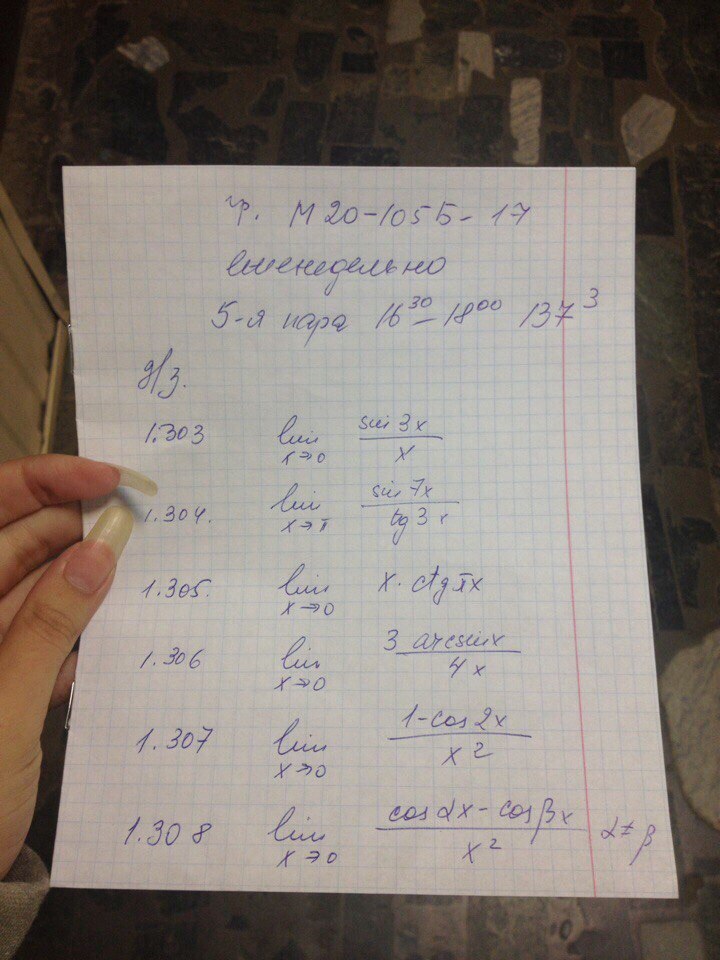 гр. М20-105Б-17
еженедельно
5-я пара 16³⁰-18⁰⁰ 137³
Д/З.
1.303 lim x→0 sin 3x / x
1.304. lim x→π sin 7x / tg 3x
1.305. lim x→0 x · ctg πx
1.306 lim x→0 3 arcsin x / 4x
1.307 lim x→0 1-cos 2x / x²
1.308 lim x→0 cos αx - cos βx / x² α≠β